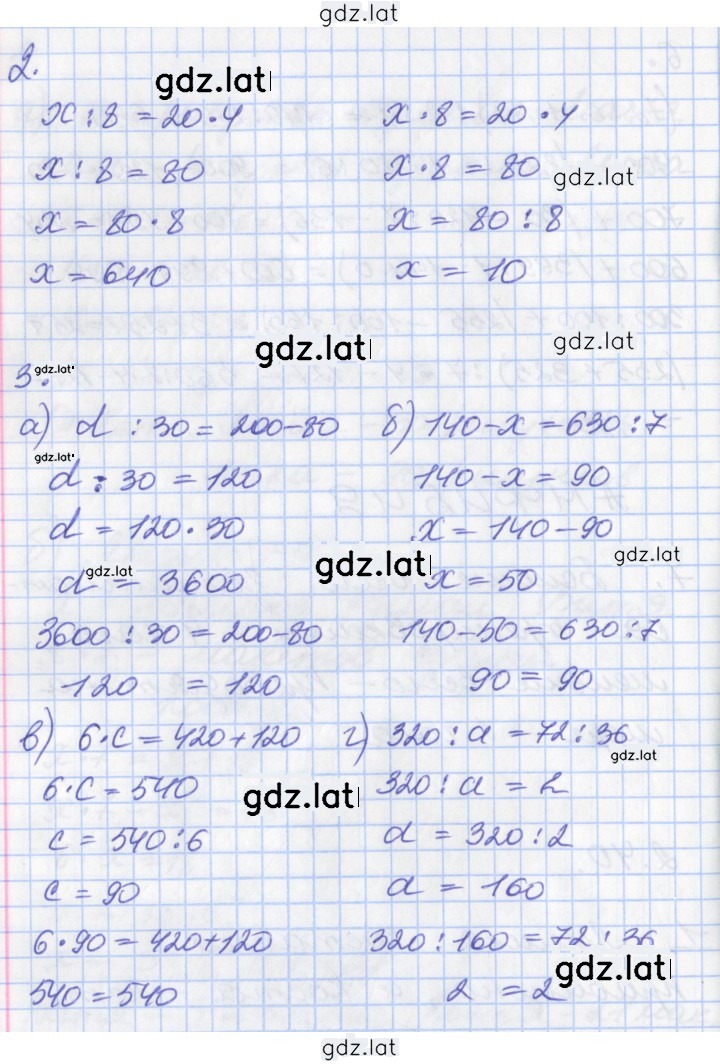 gdz.lat
2.
gdz.lat
x : 8 = 20 · 4
x : 8 = 80
x = 80 · 8
x = 640
x · 8 = 20 · 4
x · 8 = 80
gdz.lat
x = 80 : 8
x = 10
gdz.lat
gdz.lat
3.
gdz.lat
а) d : 30 = 200 - 80
gdz.lat
d : 30 = 120
d = 120 · 30
d = 3600
gdz.lat
3600 : 30 = 200 - 80
120 = 120
б) 140 - x = 630 : 7
140 - x = 90
x = 140 - 90
gdz.lat
gdz.lat
x = 50
140 - 50 = 630 : 7
90 = 90
в) 6 · c = 420 + 120
6 · c = 540
c = 540 : 6
c = 90
6 · 90 = 420 + 120
540 = 540
gdz.lat
г) 320 : a = 72 : 36
gdz.lat
320 : a = 2
a = 320 : 2
a = 160
320 : 160 = 72 : 36
gdz.lat
2 = 2
gdz.lat